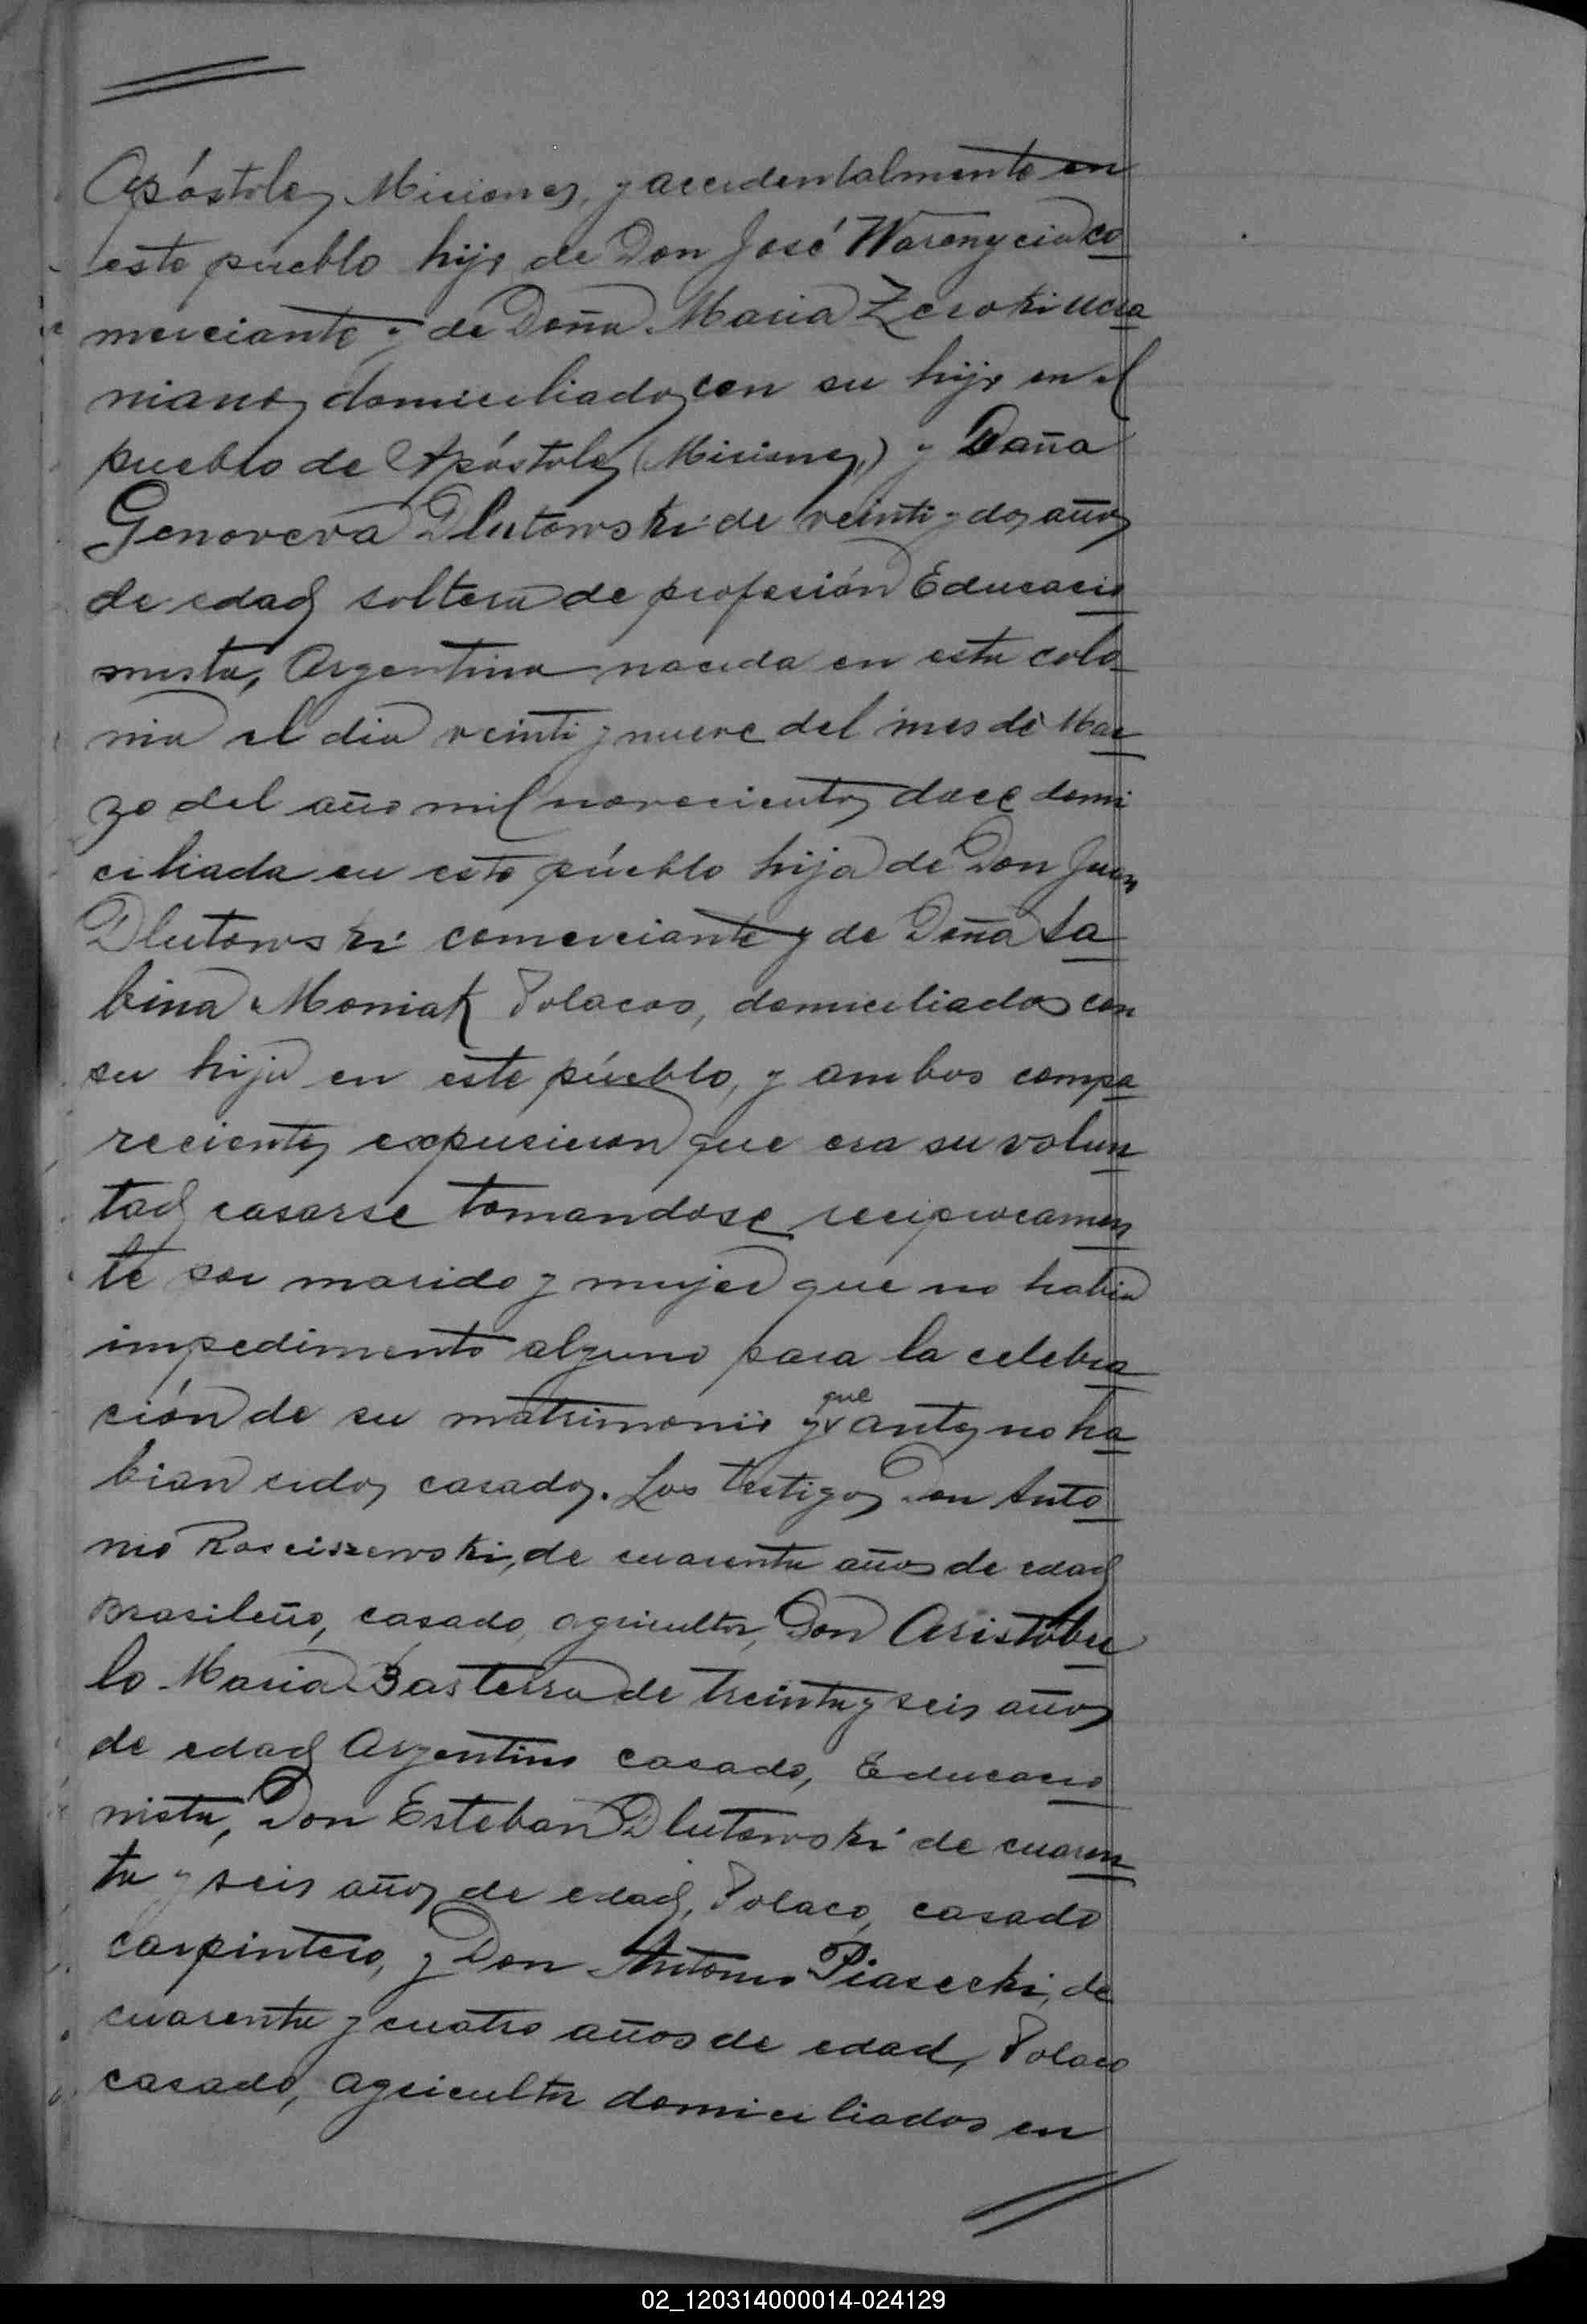 Apóstoles Misiones, y accidentalmente en
este pueblo hijo de Don José Warenycia co
merciante y de Doña Maria Zeroki ucra
nianos domiciliados con su hijo en el
pueblo de Apóstoles (Misiones,) y Doña
Genoveva Dlutowski de veinti y dos años
de edad soltera de profesión Educacio
nista, Argentina nacida en esta colo
nia el dia veinti y nueve del mes de Mar
zo del año mil novecientos doce domi
ciliada en este pueblo hija de Don Juan
Dlutowski comerciante y de Doña Sa
bina Moniak Polacos, domiciliados con
su hija en este pueblo, y ambos compa
recientes expusieron que era su volun
tad casarse tomandose reciprocamen
te por marido y mujer que no habia
impedimento alguno para la celebra
ción de su matrimonio y que antes no ha
bian sidos casados. Los testigos Don Anto
nio Rosciszewski, de cuarenta años de edad
Brasileño, casado, agricultor, Don Aristobu
lo Maria Basterra de treinta y seis años
de edad Argentino casado, Educacio
nista, Don Esteban Dlutowski de cuaren
ta y seis años de edad, Polaco, casado
carpintero, y Don Antonio Piasecki, de
cuarenta y cuatro años de edad, Polaco
casado, agricultor domiciliados en
02_120314000014-024129